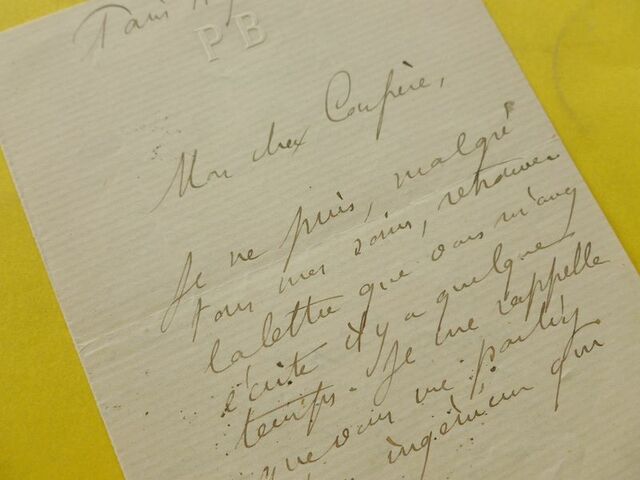 Paris
PB
Mon cher Confrère,
Je ne puis, malgré
tous mes soins, retrouver
la lettre que vous m'avez
écrite il y a quelque
temps. Je me rappelle
que vous me parliez
ingénieur qui